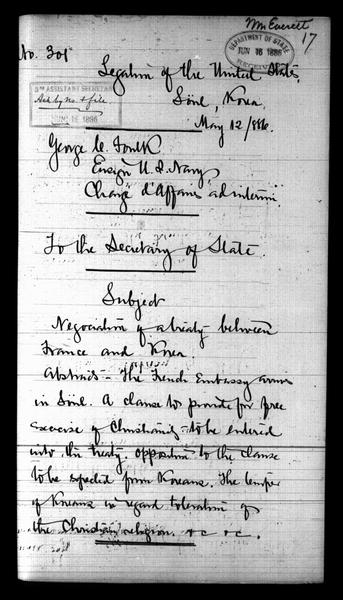 Mr Everett
17
DEPARTMENT OF STATE
JUN 16 1886
RECEIVED
No. 301
Legation of the United States,
3RD ASSISTANT SECRETARY
JUN 16 1886
Söul, Korea,
May 12/886.
George C. Foulk
Ensign U.S. Navy
Chargé d'Affaires ad interim
To the Secretary of State.
Subject
Negociation of a treaty between
France and Korea.
Abstract – The French Embassy arrives
in Söul. A clause to provide for free
exercise of Christianity – to be entered
into the treaty. opposition to the clause
to be expected from Koreans. The temper
of Koreans in regard toleration of
the Christian religion. &c &c.